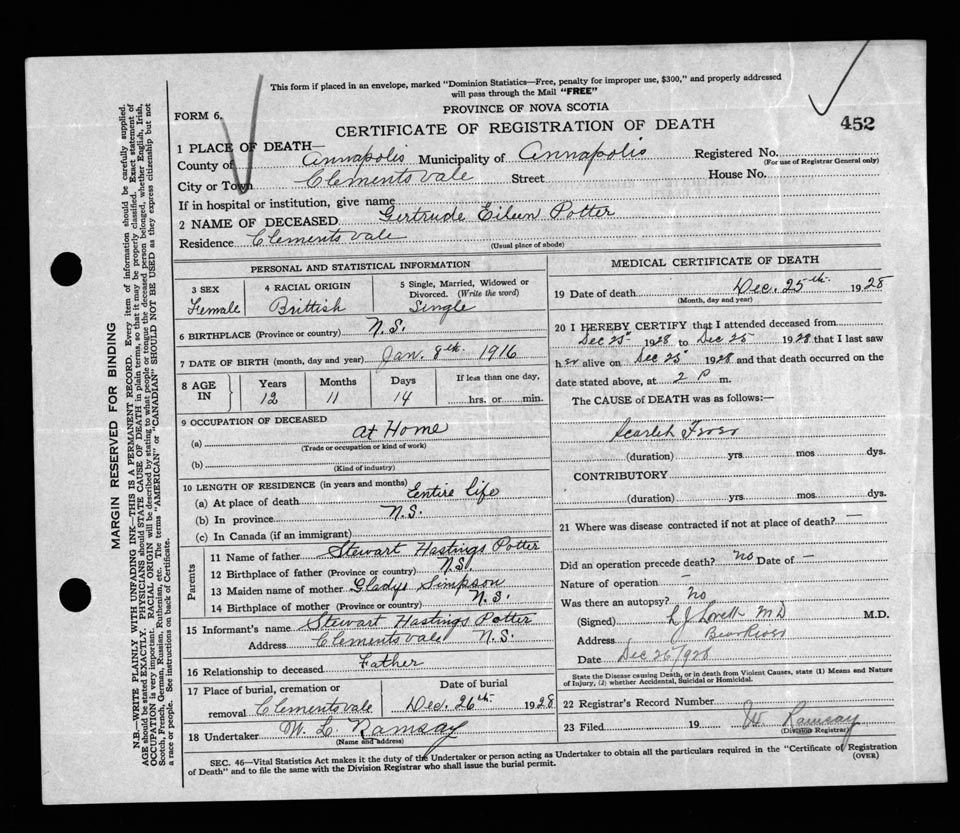 This form if placed in an envelope, marked "Dominion Statistics—Free, penalty for improper use, $300," and properly addressed
will pass through the Mail "FREE"
FORM 6.
PROVINCE OF NOVA SCOTIA
CERTIFICATE OF REGISTRATION OF DEATH
452
1 PLACE OF DEATH—
County of Annapolis Municipality of Annapolis Registered No.
(For use of Registrar General only)
City or Town Clementsvale Street House No.
If in hospital or institution, give name
2 NAME OF DECEASED Gertrude Eileen Potter
Residence Clementsvale
(Usual place of abode)
PERSONAL AND STATISTICAL INFORMATION
3 SEX Female
4 RACIAL ORIGIN Brittish
5 Single, Married, Widowed or Divorced. (Write the word) Single
6 BIRTHPLACE (Province or country) N.S.
7 DATE OF BIRTH (month, day and year) Jan. 8th 1916
8 AGE IN Years 12 Months 11 Days 14 If less than one day, hrs. or min.
9 OCCUPATION OF DECEASED
(a) at Home
(Trade or occupation or kind of work)
(b)
(Kind of industry)
10 LENGTH OF RESIDENCE (in years and months)
(a) At place of death Entire life
(b) In province N.S.
(c) In Canada (if an immigrant)
Parents
11 Name of father Stewart Hastings Potter
12 Birthplace of father (Province or country) N.S.
13 Maiden name of mother Gladys Simpson
14 Birthplace of mother (Province or country) N.S.
15 Informant's name Stewart Hastings Potter
Address Clementsvale N.S.
16 Relationship to deceased Father
17 Place of burial, cremation or removal Clementsvale
Date of burial Dec. 26th 1928
18 Undertaker W. L. Ramsay
(Name and address)
MEDICAL CERTIFICATE OF DEATH
19 Date of death Dec. 25th 1928
(Month, day and year)
20 I HEREBY CERTIFY that I attended deceased from
Dec 25 1928 to Dec 25 1928 that I last saw
her alive on Dec 25 1928 and that death occurred on the
date stated above, at 2 P m.
The CAUSE of DEATH was as follows:—
Scarlet Fever
(duration) yrs mos dys.
CONTRIBUTORY
(duration) yrs mos dys.
21 Where was disease contracted if not at place of death? —
Did an operation precede death? no Date of —
Nature of operation —
Was there an autopsy? no
(Signed) L J Lovett MD M.D.
Address Bear River
Date Dec 26/928
State the Disease causing Death, or in death from Violent Causes, state (1) Means and Nature
of Injury, (2) whether Accidental, Suicidal or Homicidal.
22 Registrar's Record Number
23 Filed 19 Ramsay
(Division Registrar)
SEC. 46—Vital Statistics Act makes it the duty of the Undertaker or person acting as Undertaker to obtain all the particulars required in the "Certificate of Registration
of Death" and to file the same with the Division Registrar who shall issue the burial permit.
(OVER)
MARGIN RESERVED FOR BINDING
N.B.—WRITE PLAINLY WITH UNFADING INK—THIS IS A PERMANENT RECORD. Every item of information should be carefully supplied.
AGE should be stated EXACTLY. PHYSICIANS should STATE CAUSE OF DEATH in plain terms, so that it may be properly classified. Exact statement of
OCCUPATION is very important. RACIAL ORIGIN will be described by stating to what people or tongue the deceased person belonged, whether English, Irish,
Scotch, French, German, Russian, Ruthenian, etc. The terms "AMERICAN" or "CANADIAN" SHOULD NOT BE USED as they express citizenship but not
a race or people. See instructions on back of Certificate.